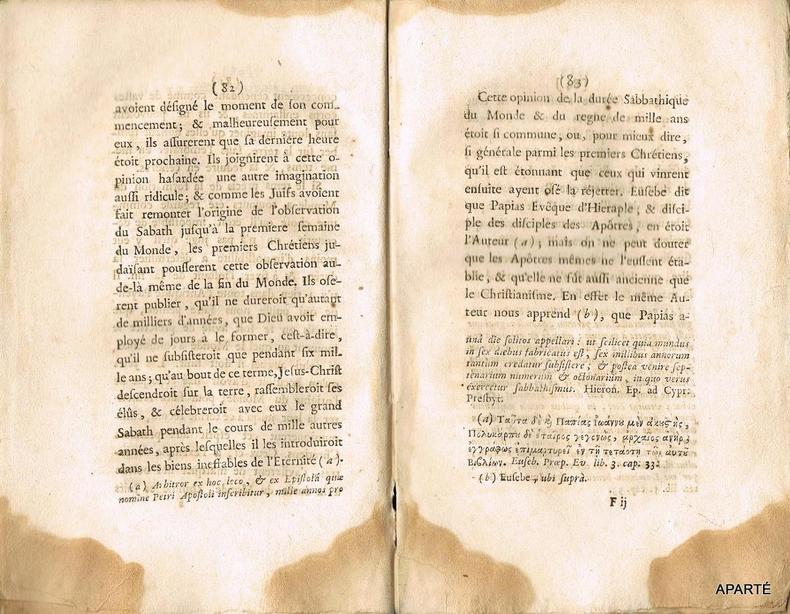 (82)
avoient désigné le moment de son com-
mencement; & malheureusement pour
eux, ils assurerent que sa derniere heure
étoit prochaine. Ils joignirent à cette o-
pinion hasardée une autre imagination
aussi ridicule; & comme les Juifs avoient
fait remonter l'origine de l'observation
du Sabath jusqu'à la premiere semaine
du Monde, les premiers Chrétiens ju-
daïsant pousserent cette observation au-
de-là même de la fin du Monde. Ils ose-
rent publier, qu'il ne dureroit qu'autant
de milliers d'années, que Dieu avoit em-
ployé de jours à le former, cest-à-dire,
qu'il ne subsisteroit que pendant six mil-
le ans; qu'au bout de ce terme, Jesus-Christ
descendroit sur la terre, rassembleroit ses
élûs, & célébreroit avec eux le grand
Sabath pendant le cours de mille autres
années, après lesquelles il les introduiroit
dans les biens ineffables de l'Eternité (a).
(a) Arbitror ex hoc loco, & ex Epistolâ quæ
nomine Petri Apostoli inscribitur, mille annos pro
(83)
Cette opinion de la durée Sabbathique
du Monde & du regne de mille ans
étoit si commune, ou, pour mieux dire,
si générale parmi les premiers Chrétiens,
qu'il est étonnant que ceux qui vinrent
ensuite ayent osé la réjetter. Eusebe dit
que Papias Evêque d'Hieraple, & disci-
ple des disciples des Apôtres, en étoit
l'Auteur (a); mais on ne peut douter
que les Apôtres mêmes ne l'eussent éta-
blie, & qu'elle ne fût aussi ancienne que
le Christianisme. En effet le même Au-
teur nous apprend (b), que Papias a-
unâ die solitos appellari: ut scilicet quia mundus
in sex diebus fabricatus est, sex millibus annorum
tantum credatur subsistere; & postea venire sep-
tenarium numerum & octonarium, in quo verus
exercetur sabbathismus. Hieron. Ep. ad Cypr.
Presbyt.
(a) Ταῦτα δὲ ϗ Παπίας Ἰωάννου μὲν ἀκουστής,
Πολυκάρπου δὲ ἑταῖρος γεγονὼς, ἀρχαῖος ἀνὴρ,
ἐγγράφως ἐπιμαρτυρεῖ ἐν τῇ τετάρτῃ τῶν αὑτοῦ
Βιβλίων. Euseb. Præp. Ev. lib. 3. cap. 33.
(b) Eusebe, ubi suprà.
F ij
APARTÉ